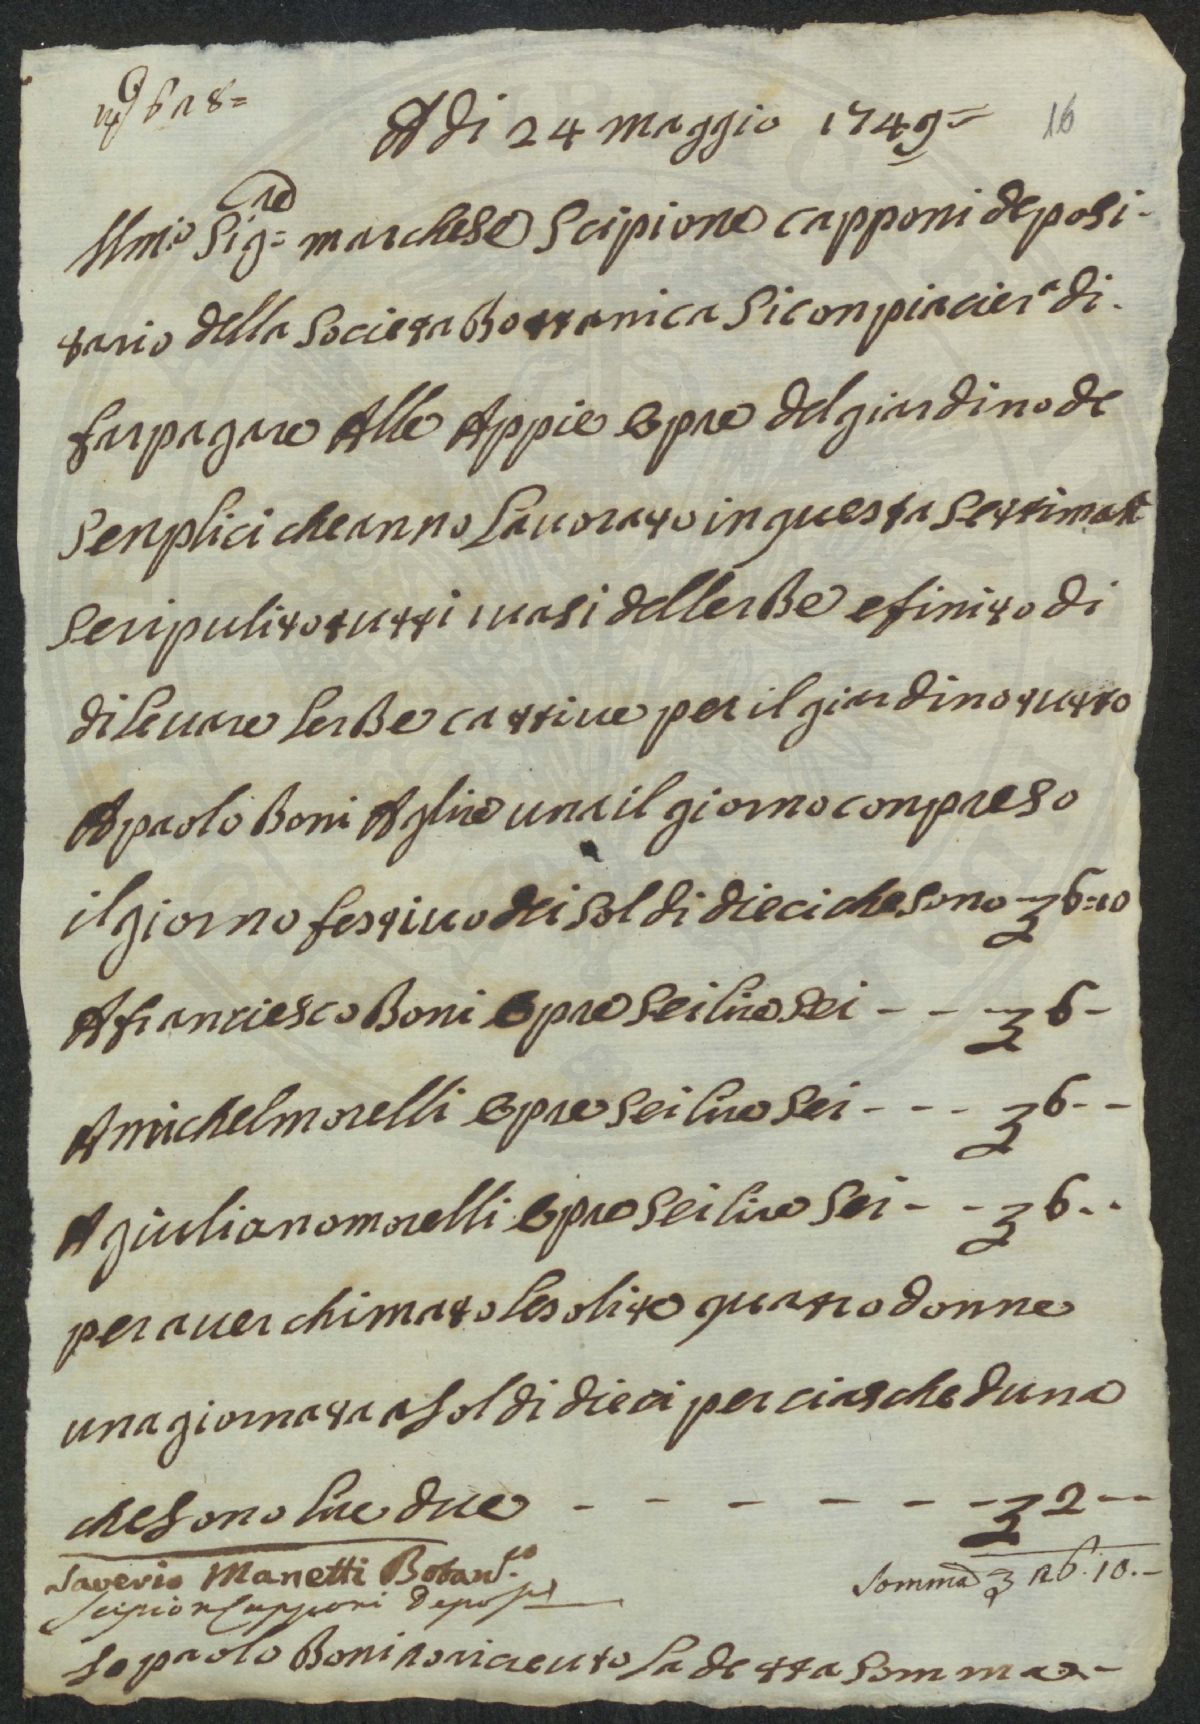 N° 618=
A di 24 maggio 1749=
16
Illmo: Sig=re marchese Scipione capponi deposi-
tario della Societa Bottanica Si conpiaciera di-
far pagare Alle Appie Opre del giardino de
Senplici che anno Lauorato in questa Settimana
Se ripulito tutti i uasi dellerBe e finito di
di Leuare LerBe cattiue per il giardino tutto
A paolo Boni A glire una il giorno conpreso
il giorno festiuo dei Soldi dieci che sono £ 6=10
A franciesco Boni Opre Sei lire Sei - - - £ 6 -
A michel morelli Opre Sei lire Sei - - - £ 6 - -
A giuliano morelli Opre Sei lire Sei - - £ 6 - -
per auer chimato le solite quatro donne
una giornata a Soldi dieci per ciascheduna
che Sono lire due - - - - - - £ 2 - -
Saverio Manetti Botan.co
Somma £ 26.10.-
Scipion Capponi Depos
Io paolo Boni o riceuto La detta Somma -